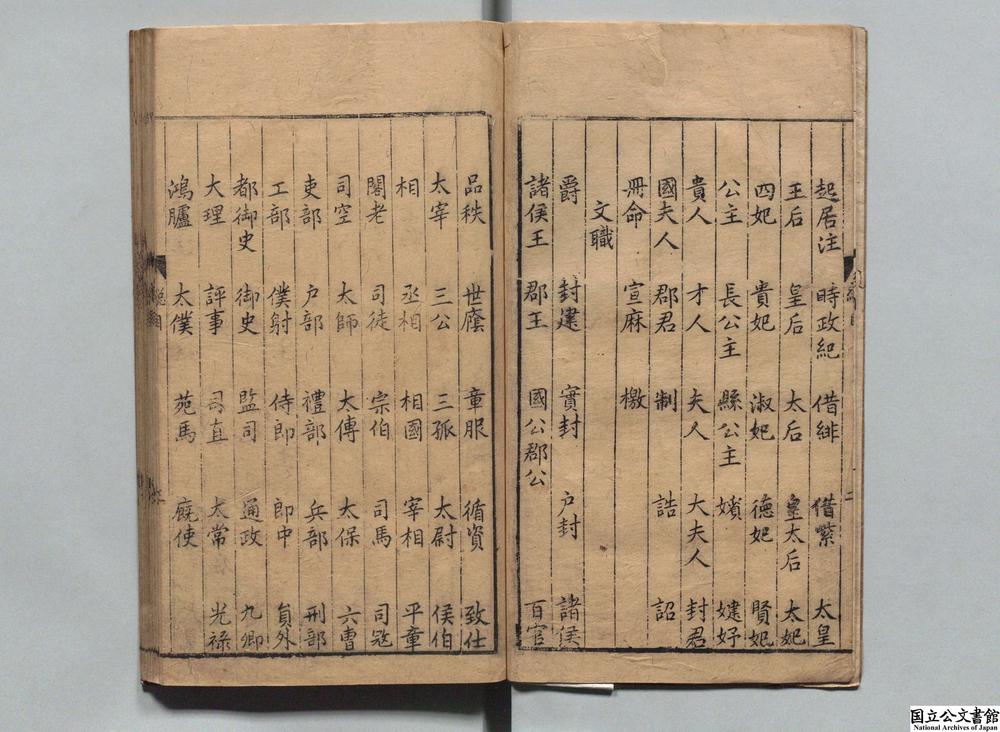 起居注 時政紀 借緋 借紫 太皇
王后 皇后 太后 皇太后 太妃
四妃 貴妃 淑妃 德妃 賢妃
公主 長公主 縣公主 嬪 婕妤
貴人 才人 夫人 大夫人 封君
國夫人 郡君 制 誥 詔
冊命 宣麻 檄
文職
爵 封建 實封 户封 諸侯
諸侯王 郡王 國公郡公 百官
品秩 世廕 章服 循資 致仕
太宰 三公 三孤 太尉 侯伯
相 丞相 相國 宰相 平章
閣老 司徒 宗伯 司馬 司寇
司空 太師 太傅 太保 六曹
吏部 户部 禮部 兵部 刑部
工部 僕射 侍郎 郎中 員外
都御史 御史 監司 通政 九卿
大理 評事 司直 太常 光祿
鴻臚 太僕 苑馬 廐使
国立公文書館
National Archives of Japan